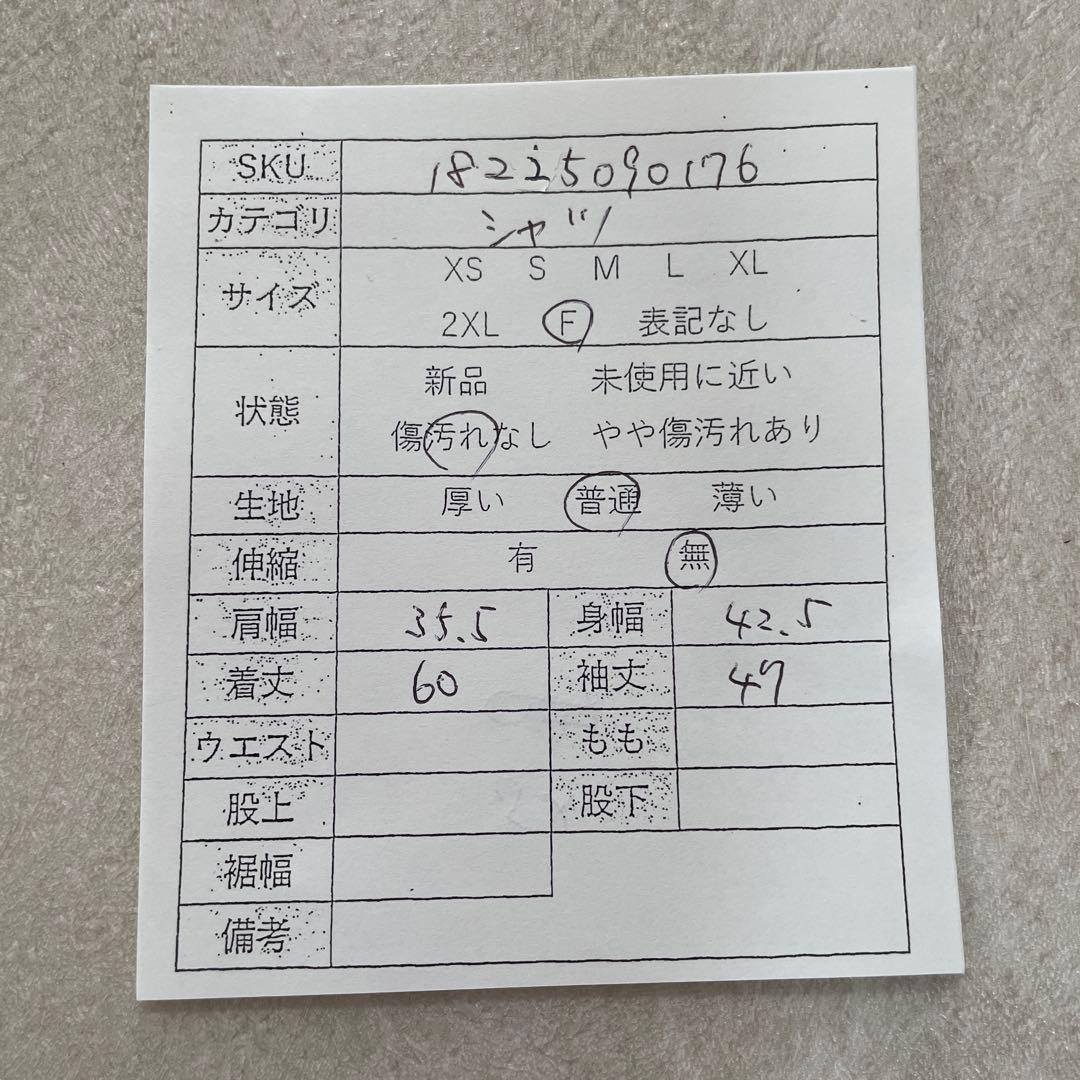 SKU 18225090176
カテゴリ シャツ
サイズ XS S M L XL
2XL F 表記なし
状態 新品 未使用に近い
傷汚れなし やや傷汚れあり
生地 厚い 普通 薄い
伸縮 有 無
肩幅 35.5 身幅 42.5
着丈 60 袖丈 47
ウエスト もも
股上 股下
裾幅
備考